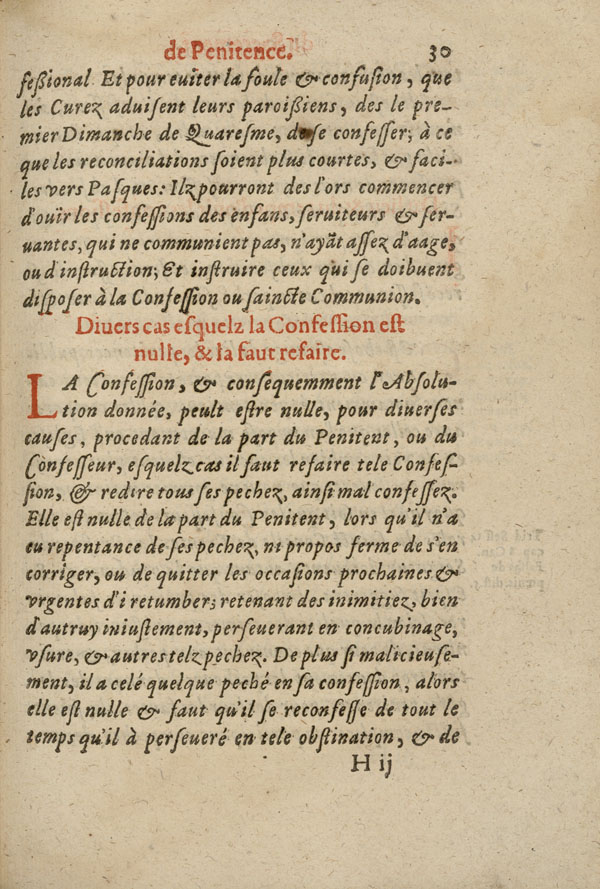 de Penitence. 30
feßional Et pour euiter la foule & confusion, que
les Curez aduisent leurs paroißiens, des le pre-
mier Dimanche de Quaresme, de se confesser; à ce
que les reconciliations soient plus courtes, & faci-
les vers Pasques: Ilz pourront des l'ors commencer
d'ouïr les confessions des enfans, seruiteurs & ser-
uantes, qui ne communient pas, n'ayāt assez d'aage,
ou d'instruction; Et instruire ceux qui se doibuent
disposer à la Confession ou saincte Communion.
Diuers cas esquelz la Confession est
nulle, & la faut refaire.
LA Confession, & consequemment l'Absolu-
tion donnée, peult estre nulle, pour diuerses
causes, procedant de la part du Penitent, ou du
Confesseur, esquelz cas il faut refaire tele Confes-
sion, & redire tous ses pechez, ainsi mal confessez.
Elle est nulle de la part du Penitent, lors qu'il n'a
eu repentance de ses pechez, ni propos ferme de s'en
corriger, ou de quitter les occasions prochaines &
vrgentes d'i retumber; retenant des inimitiez, bien
d'autruy iniustement, perseuerant en concubinage,
vsure, & autres telz pechez. De plus si malicieuse-
ment, il a celé quelque peché en sa confession, alors
elle est nulle & faut qu'il se reconfesse de tout le
temps qu'il à perseueré en tele obstination, & de
H ij